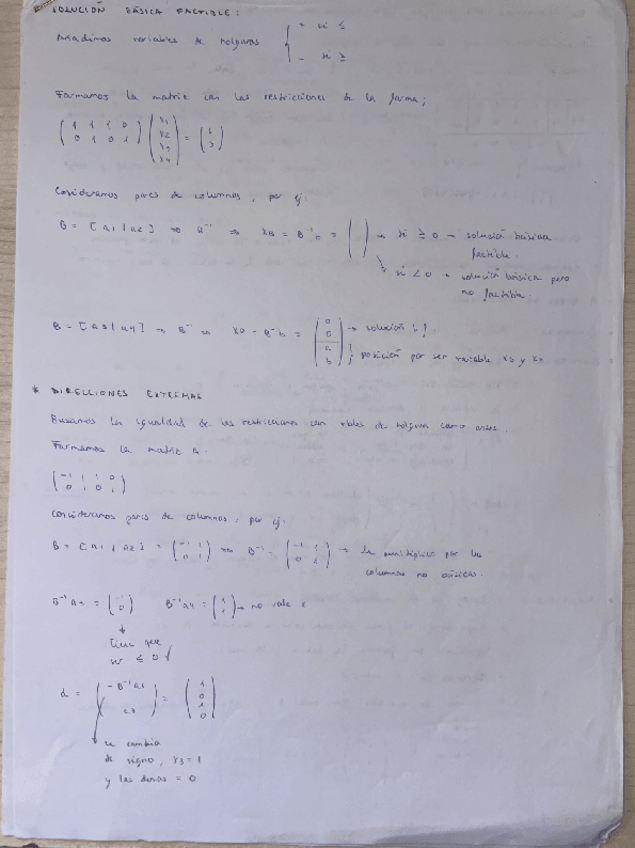 SOLUCIÓN BÁSICA FACTIBLE:
Añadimos variables de holguras { + si ≤
- si ≥
Formamos la matriz con las restricciones de la forma;
( 1 1 1 0 ) ( x1 ) = ( 6 )
( 0 1 0 1 ) ( x2 ) ( 3 )
( x3 )
( x4 )
Consideramos pares de columnas, por ej:
B = [ a1 | a2 ] → B⁻¹ ⇒ xB = B⁻¹b = ( ) → si ≥ 0 → solución básica
factible.
↘ si < 0 → solución básica pero
no factible.
B = [ a3 | a4 ] → B⁻¹ ⇒ xB = B⁻¹b = ( 0 0 a b ) → solución b f
} posición por ser variable x3 y x4
* DIRECCIONES EXTREMAS
Buscamos la igualdad de las restricciones con vbles de holgura como antes.
Formamos la matriz A.
( -1 1 1 0 )
( 0 1 0 1 )
Consideramos pares de columnas, por ej:
B = [ a1 | a2 ] = ( -1 1 ) ⇒ B⁻¹ = ( -1 1 ) → Se multiplica por las
( 0 1 ) ( 0 1 ) columnas no básicas.
B⁻¹ a3 = ( -1 ) B⁻¹ a4 = ( 1 ) → no vale x
( 0 ) ( 1 )
↓
Tiene que
ser ≤ 0
d = ( -B⁻¹ a3 ) = ( 1 )
( e3 ) ( 0 )
( 1 )
( 0 )
se cambia
de signo, x3 = 1
y las demás = 0